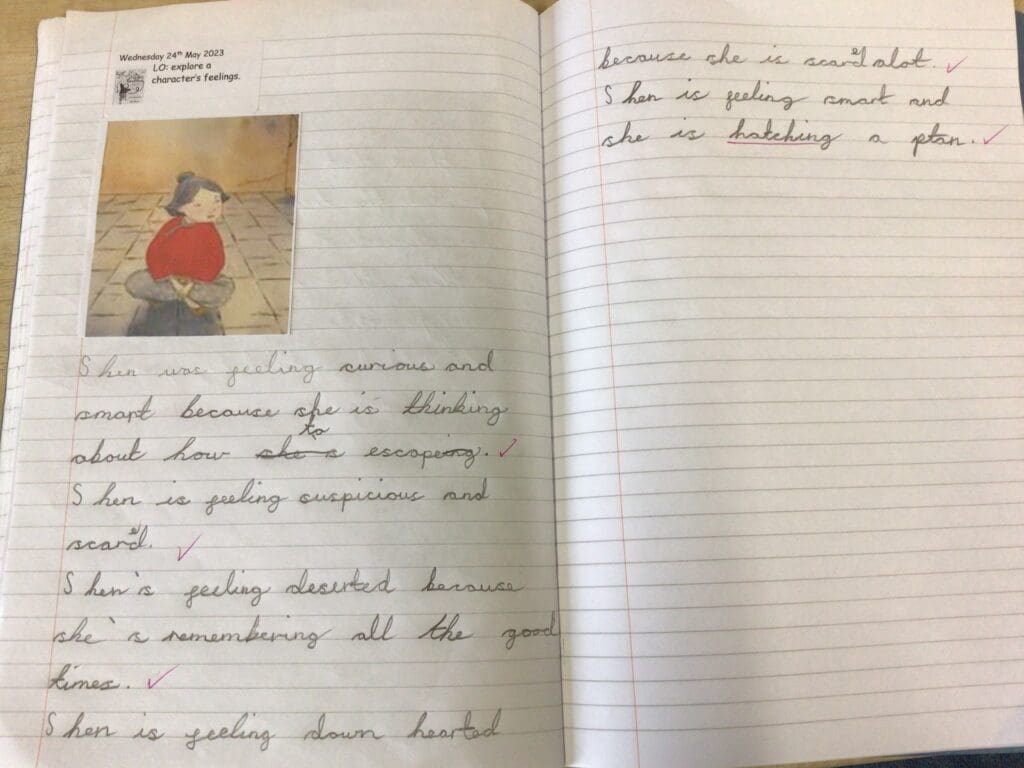 Wednesday 24th May 2023
LO: explore a
character's feelings.
Shen was feeling curious and
smart because she is thinking
about how she s to escapeing.
Shen is feeling suspicious and
scared.
Shen's feeling deserted because
she's remembering all the good
times.
Shen is feeling down hearted
because she is scared alot.
Shen is feeling smart and
she is hatching a plan.